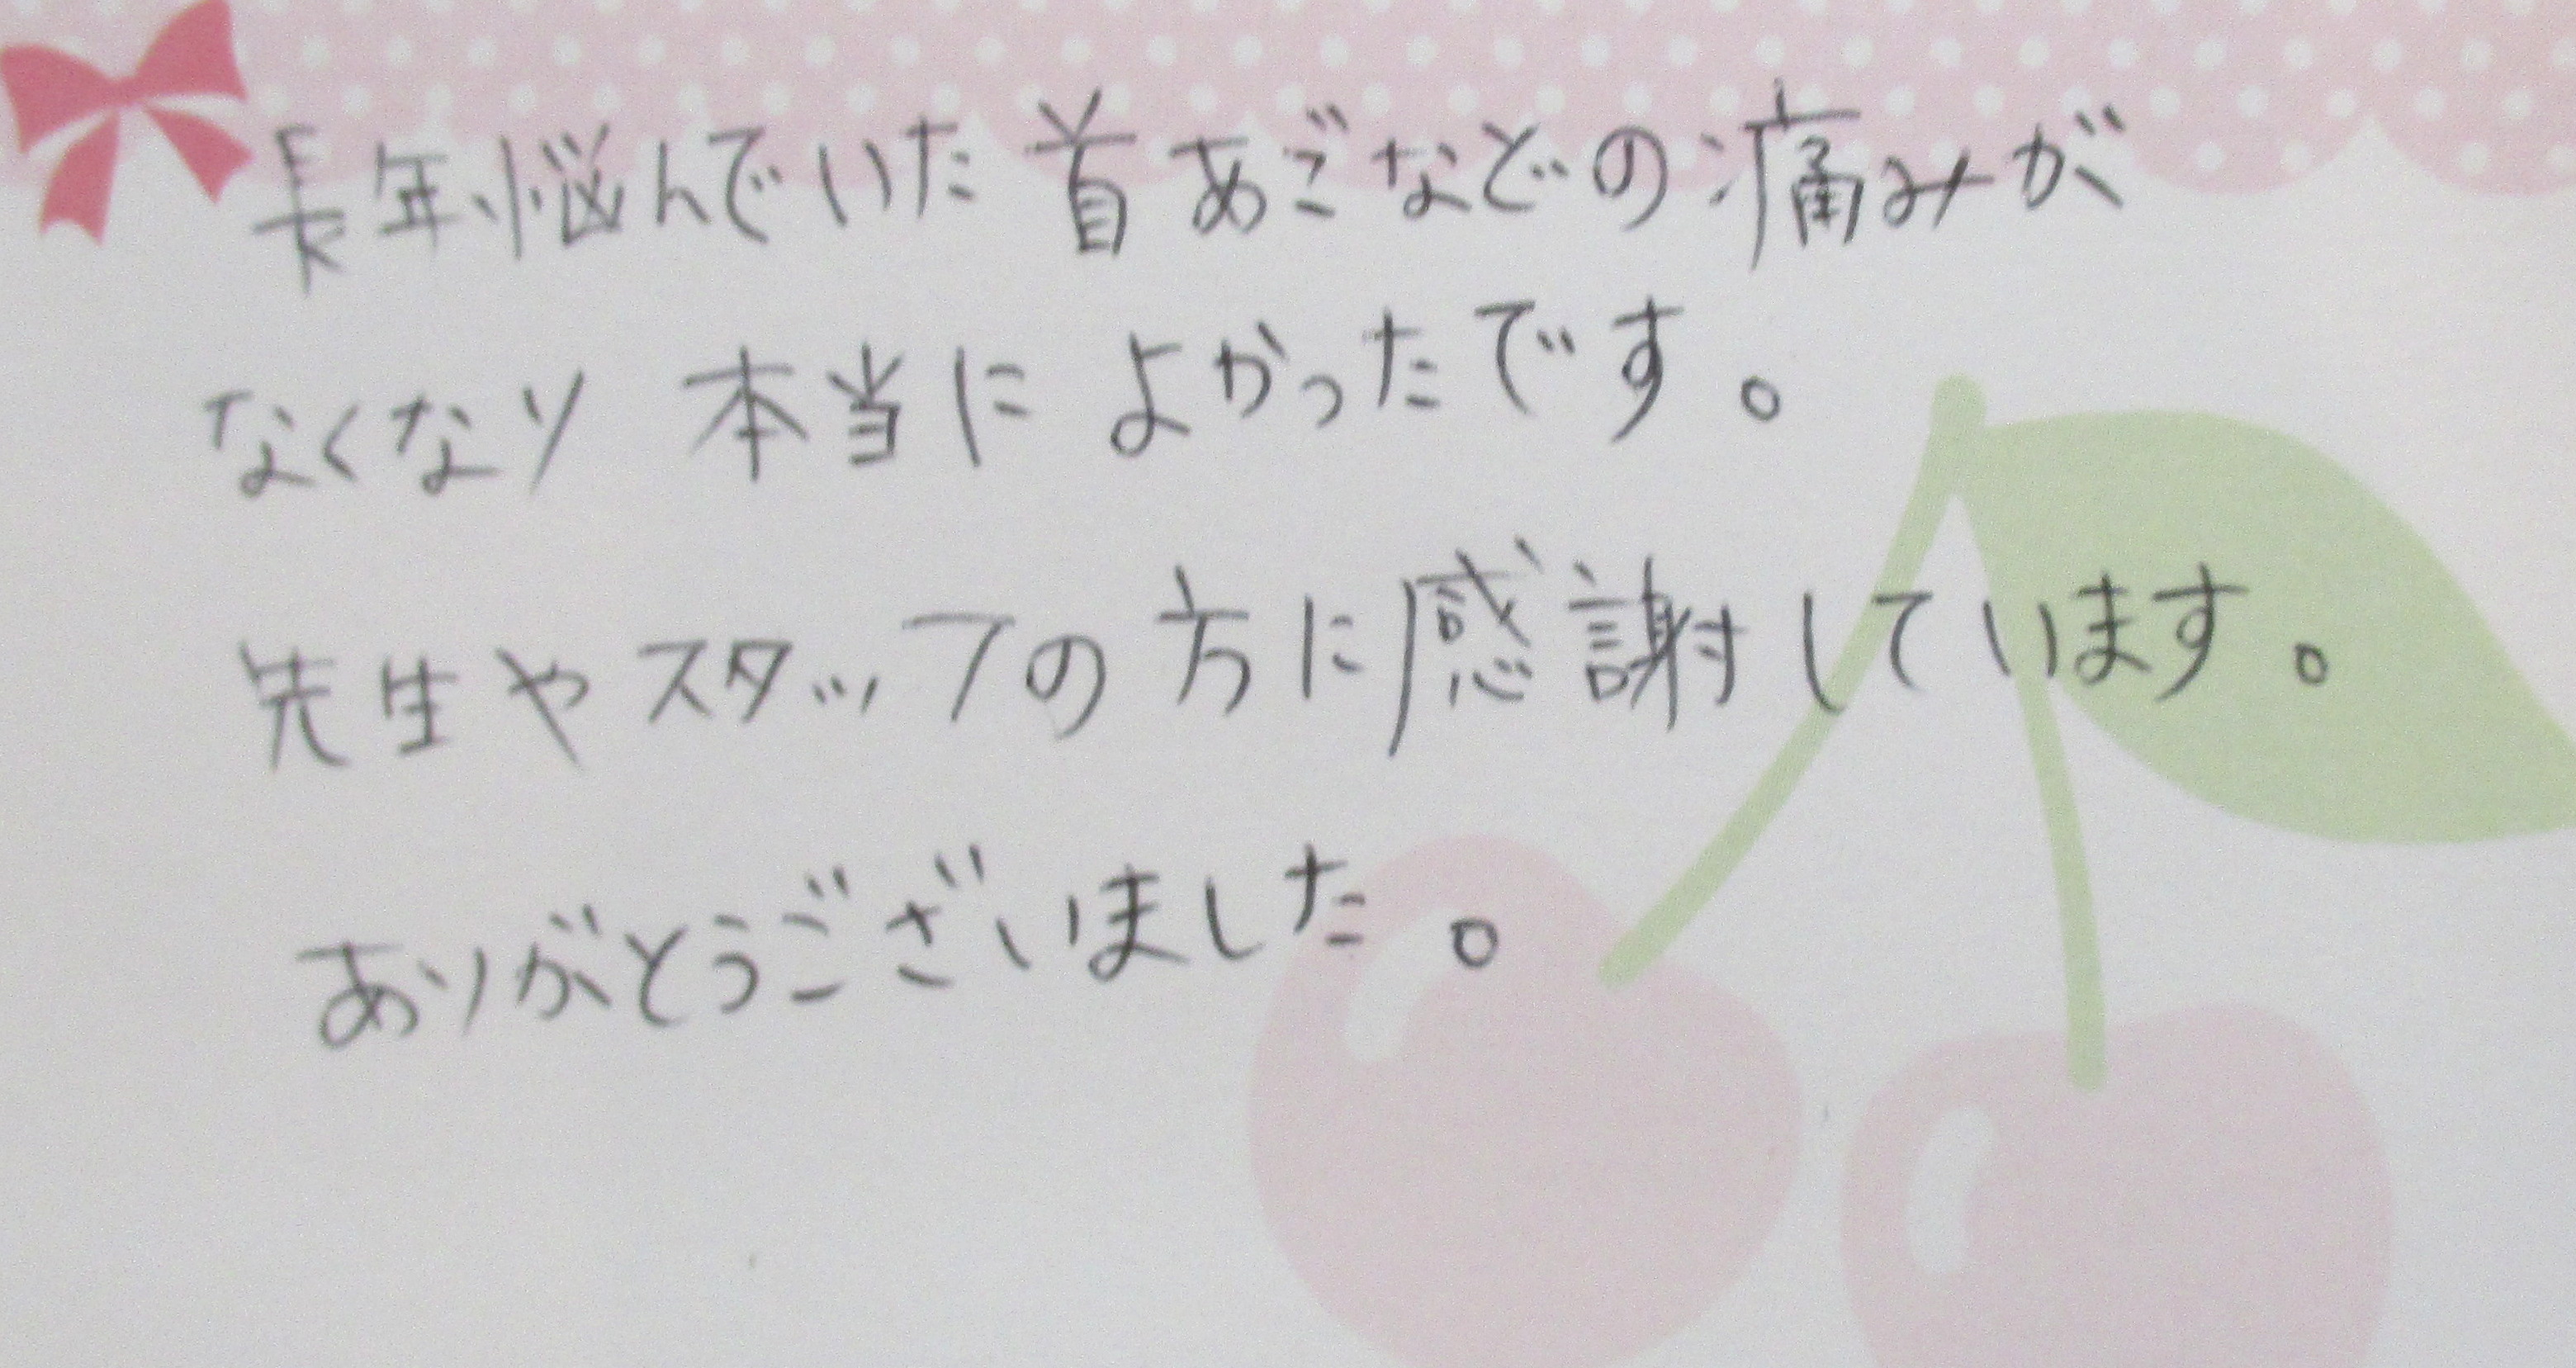 長年悩んでいた首あごなどの痛みが
なくなり 本当に よかったです。
先生やスタッフの方に感謝しています。
ありがとうございました。